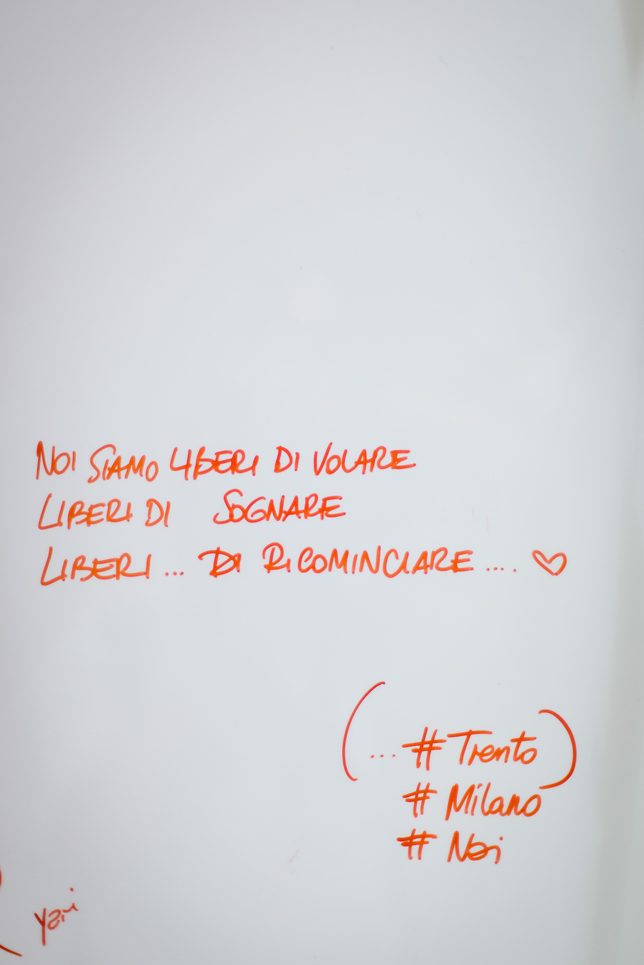 NOI SIAMO LIBERI DI VOLARE
LIBERI DI SOGNARE
LIBERI ... DI RICOMINCIARE .... ♡
(... # Trento)
# Milano
# Noi